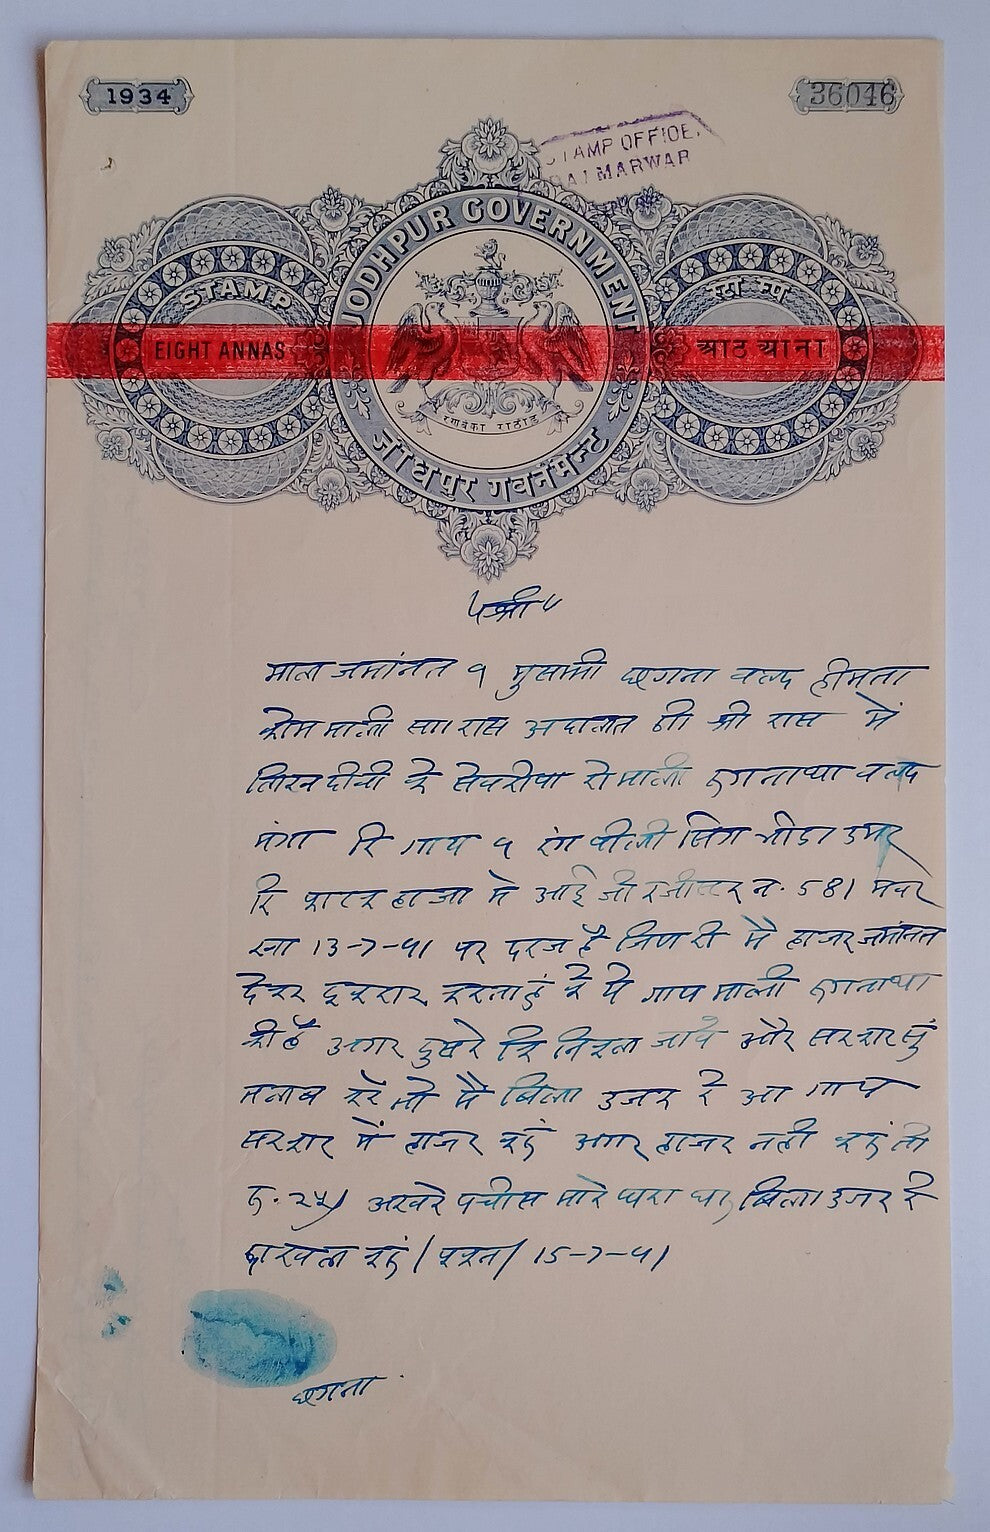 1934
36046
STAMP OFFICE,
RAJ MARWAR
JODHPUR GOVERNMENT
STAMP
स्टाम्प
EIGHT ANNAS
आठ आना
रणबंका राठौड़
जोधपुर गवर्नमेन्ट
५श्री५
जमांनत १ मुसामी छगना वल्द हीमता
कोम माली सा। रास अदालत श्री रास में
के माली रुगनाथा वल्द
रि गाय १ रंग पीली सिंग उमर
रि हाजा में आई जो रजीस्टर न. 581
13-7-41 पर दरज है में हाजर जमांनत
देकर इकरार करता हुं के ये गाय माली रुगनाथा
अगर दुसरे कि निकल जावे और सरकार सुं
मै बिला उजर रे आ गाय
सरकार में हाजर करुं अगर हाजर नही करुं तो
रु. २५) अखरे पचीस मारे घरा बिला उजर रे
दाखल करुं 15-7-41
छगना